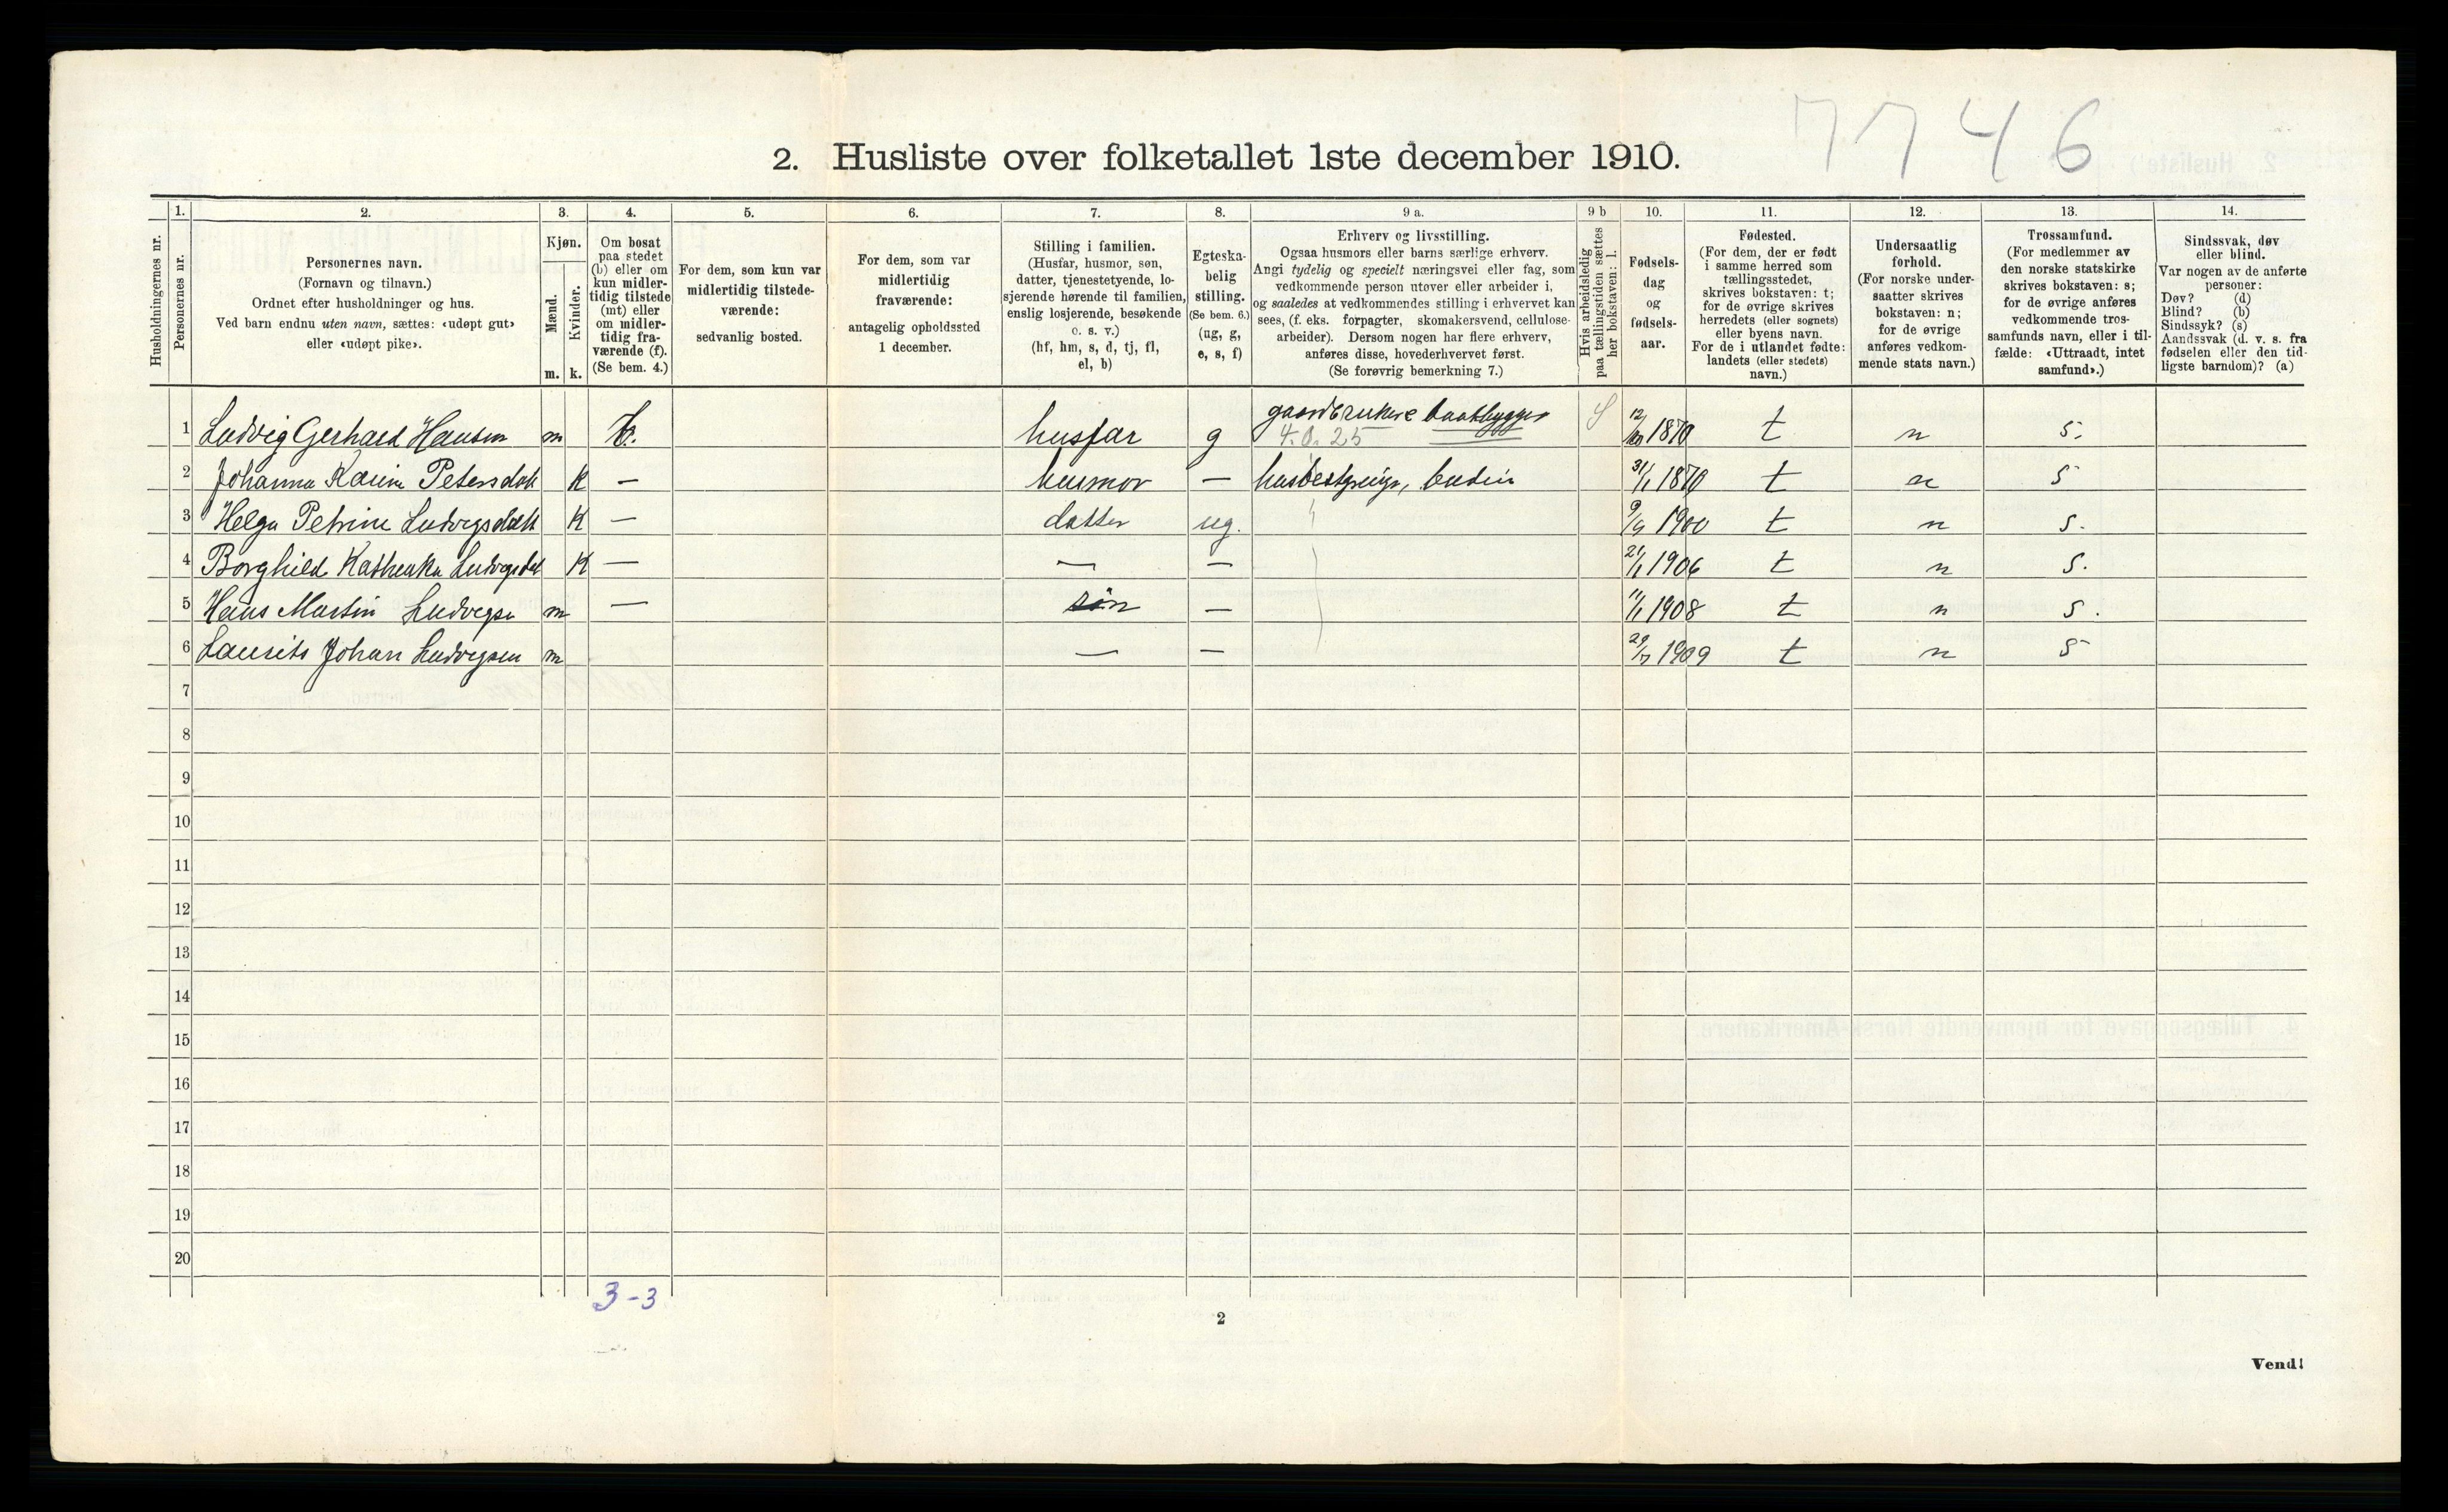 7746
2. Husliste over folketallet 1ste december 1910.
1. 2. 3. 4. 5. 6. 7. 8. 9 a. 9 b 10. 11. 12. 13. 14.
Husholdningernes nr.
Personernes nr.
Personernes navn.
(Fornavn og tilnavn.)
Ordnet efter husholdninger og hus.
Ved barn endnu uten navn, sættes: «udøpt gut»
eller «udøpt pike».
Kjøn.
Mænd.
Kvinder.
m. k.
Om bosat
paa stedet
(b) eller om
kun midler-
tidig tilstede
(mt) eller
om midler-
tidig fra-
værende (f).
(Se bem. 4.)
For dem, som kun var
midlertidig tilstede-
værende:
sedvanlig bosted.
For dem, som var
midlertidig
fraværende:
antagelig opholdssted
1 december.
Stilling i familien.
(Husfar, husmor, søn,
datter, tjenestetyende, lo-
sjerende hørende til familien,
enslig losjerende, besøkende
o. s. v.)
(hf, hm, s, d, tj, fl,
el, b)
Egteska-
belig
stilling.
(Se bem. 6.)
(ug, g,
e, s, f)
Erhverv og livsstilling.
Ogsaa husmors eller barns særlige erhverv.
Angi tydelig og specielt næringsvei eller fag, som
vedkommende person utøver eller arbeider i,
og saaledes at vedkommendes stilling i erhvervet kan
sees, (f. eks. forpagter, skomakersvend, cellulose-
arbeider). Dersom nogen har flere erhverv,
anføres disse, hovederhvervet først.
(Se forøvrig bemerkning 7.)
Hvis arbeidsledig
paa tællingstiden sættes
her bokstaven: l.
Fødsels-
dag
og
fødsels-
aar.
Fødested.
(For dem, der er født
i samme herred som
tællingsstedet,
skrives bokstaven: t;
for de øvrige skrives
herredets (eller sognets)
eller byens navn.
For de i utlandet fødte:
landets (eller stedets)
navn.)
Undersaatlig
forhold.
(For norske under-
saatter skrives
bokstaven: n;
for de øvrige
anføres vedkom-
mende stats navn.)
Trossamfund.
(For medlemmer av
den norske statskirke
skrives bokstaven: s;
for de øvrige anføres
vedkommende tros-
samfunds navn, eller i til-
fælde: «Uttraadt, intet
samfund».)
Sindssvak, døv
eller blind.
Var nogen av de anførte
personer:
Døv? (d)
Blind? (b)
Sindssyk? (s)
Aandssvak (d. v. s. fra
fødselen eller den tid-
ligste barndom)? (a)
gaardbruker baatbygger
1 Ludvig Gerhard Hansen m b. husfar g 4.0.25 1870 t n s.
2 Johanna Karine Petersdatt k — husmor — husbestyreige, budeie 31/1 1870 t n s
3 Helga Petrine Ludvigsdatt k — datter ug. 9/9 1900 t n s.
4 Borghild Kathinka Ludvigsdat k — — — 21/1 1906 t n s.
5 Hans Martin Ludvigse m — søn — 11/1 1908 t n s.
6 Laurits Johan Ludvigsen m — — 1909 t n s
7
8
9
10
11
12
13
14
15
16
17
18
19
20
3-3
2
Vend!